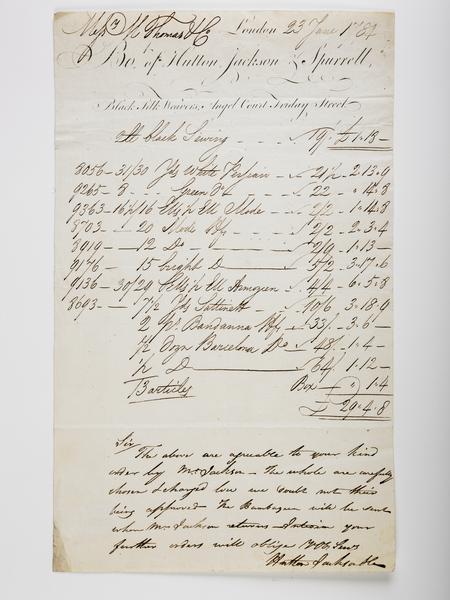 Messrs M Thomas & Co London 23 June 1784
Bot of Hutton, Jackson & Spurrell,
Black Silk Weavers, Angel Court Friday Street
blk black Sewing 19/ £1.13 -
8056 - 31/30 Yds White Persian 21½ - 2.13.9
9265 - 8 Green Do 22 - 14.8
9363 - 16½/16 Ells ½ Ell Mode 2/2 - 1.14.8
8703 - 20 Mode Hfs 2/2 - 2.3.4
8919 - 12 Do 2/9 - 1.13 -
9176 - 15 bright D 5/2 - 3.17.6
9136 - 30/29 Ells ½ Ell Armozeen 4/4 - 6.5.8
8693 - 7½ Yds Sattinett 10/6 - 3.18.9
2 Ps Bandanna Hfs 33/ - 3.6 -
½ Dozn Barcelona Do 48/ 1.4 -
½ D 64/ 1.12 -
13 articles Box - 1.4
£ 29.4.8
Sir
The above are agreable to your kind
order by Mr Jackson - The whole are carefully
chosen & charged low we doubt not their
being approved - The Bombazeen will be sent
when Mr Jackson returns - Interim your
further orders will oblige Yr Ob Servts
Hutton Jackson & Co